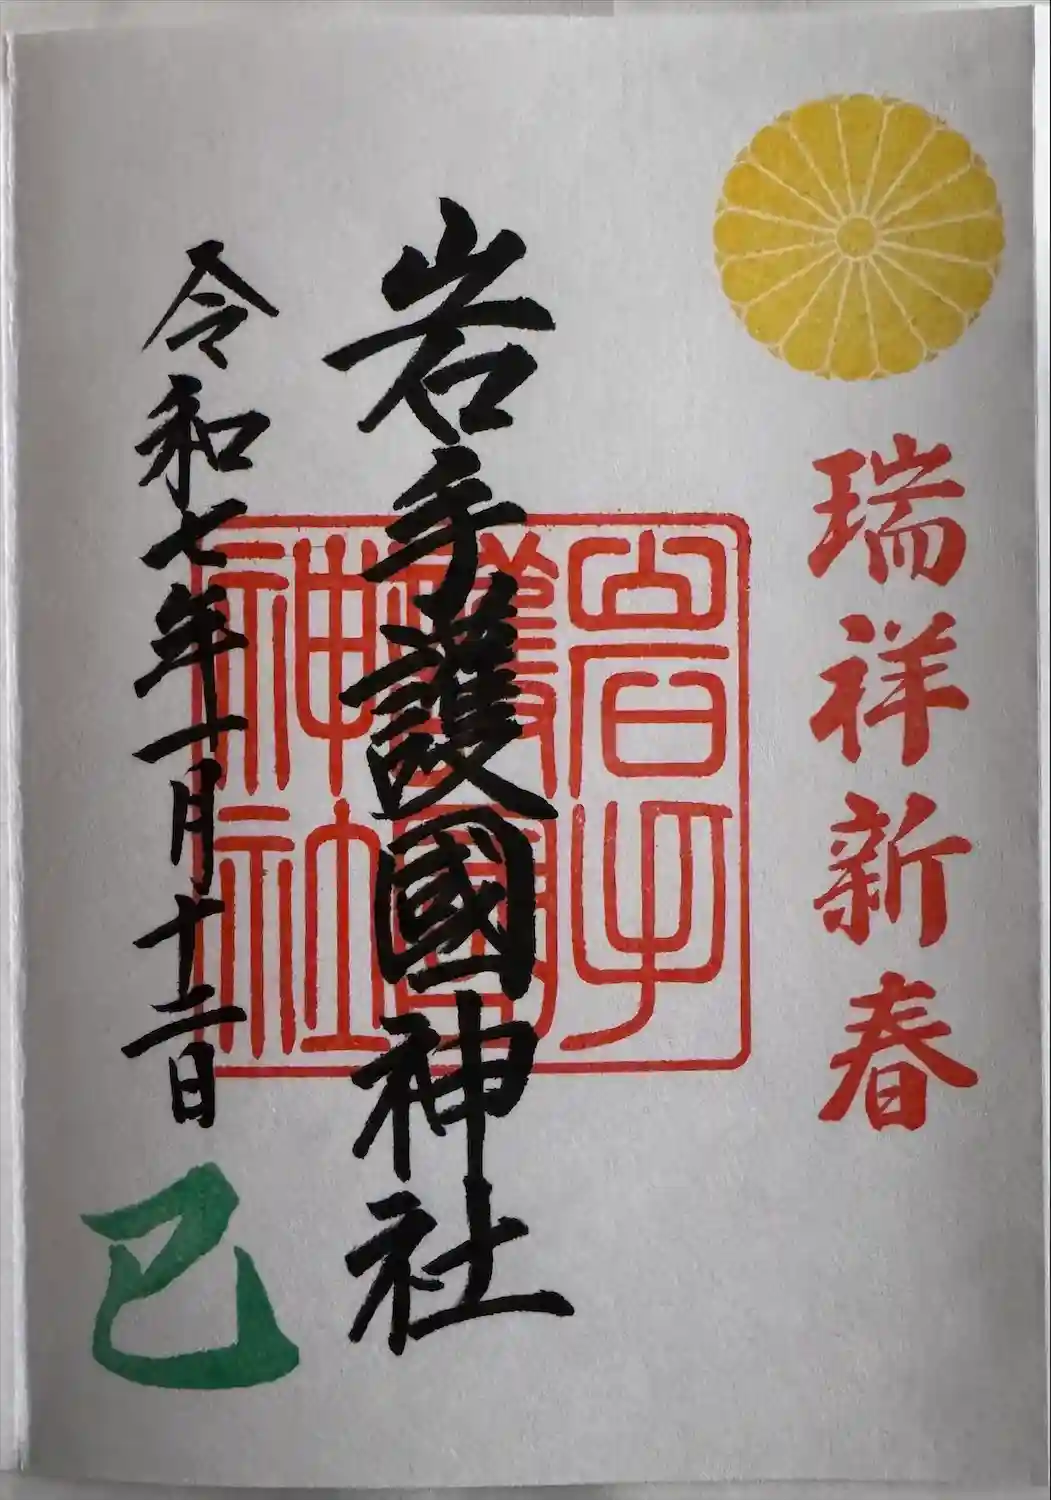 瑞祥新春
岩手護國神社
岩手護國神社
令和七年一月十二日
巳